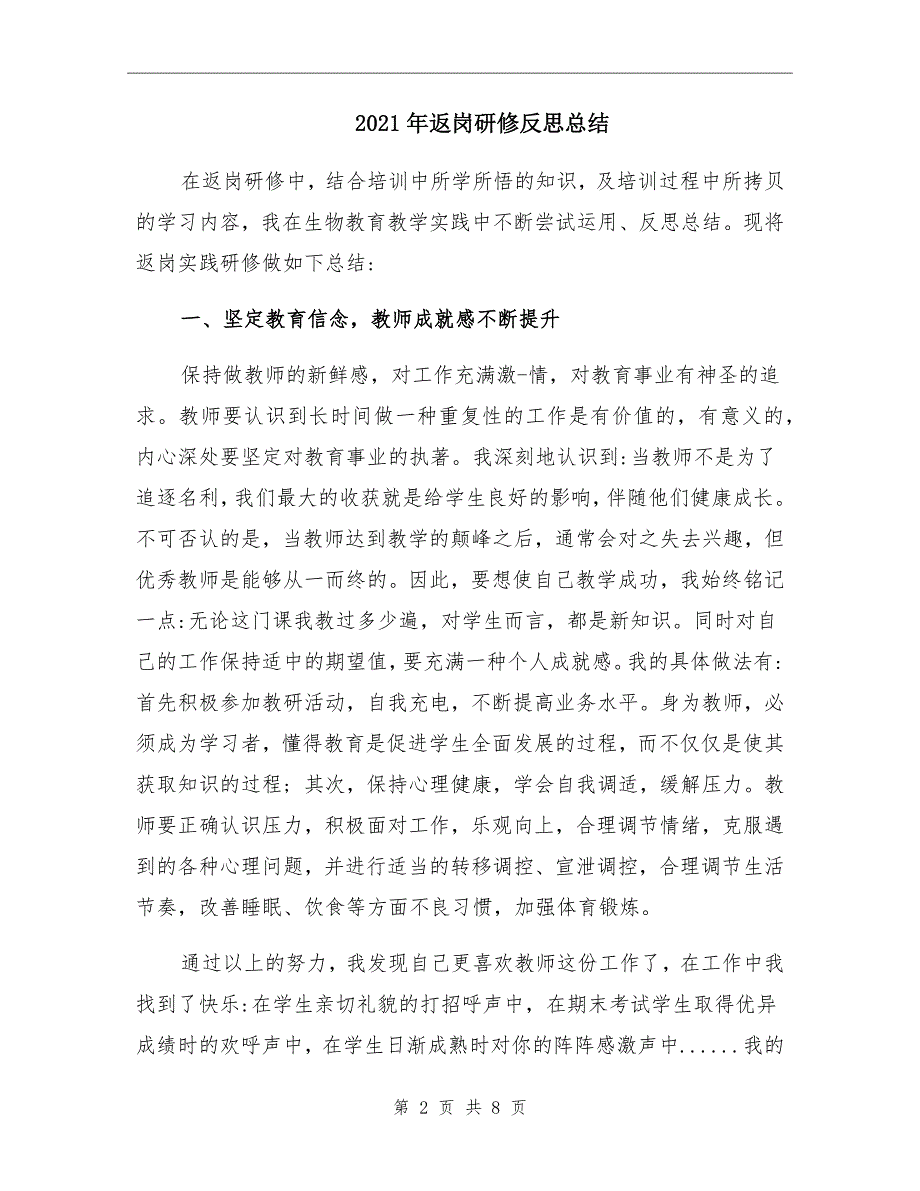 2021年返岗研修反思总结
在返岗研修中，结合培训中所学所悟的知识，及培训过程中所拷贝
的学习内容，我在生物教育教学实践中不断尝试运用、反思总结。现将
返岗实践研修做如下总结:
一、坚定教育信念，教师成就感不断提升
保持做教师的新鲜感，对工作充满激-情，对教育事业有神圣的追
求。教师要认识到长时间做一种重复性的工作是有价值的，有意义的，
内心深处要坚定对教育事业的执著。我深刻地认识到:当教师不是为了
追逐名利，我们最大的收获就是给学生良好的影响，伴随他们健康成长。
不可否认的是，当教师达到教学的颠峰之后，通常会对之失去兴趣，但
优秀教师是能够从一而终的。因此，要想使自己教学成功，我始终铭记
一点:无论这门课我教过多少遍，对学生而言，都是新知识。同时对自
己的工作保持适中的期望值，要充满一种个人成就感。我的具体做法有:
首先积极参加教研活动，自我充电，不断提高业务水平。身为教师，必
须成为学习者，懂得教育是促进学生全面发展的过程，而不仅仅是使其
获取知识的过程；其次，保持心理健康，学会自我调适，缓解压力。教
师要正确认识压力，积极面对工作，乐观向上，合理调节情绪，克服遇
到的各种心理问题，并进行适当的转移调控、宣泄调控，合理调节生活
节奏，改善睡眠、饮食等方面不良习惯，加强体育锻炼。
通过以上的努力，我发现自己更喜欢教师这份工作了，在工作中我
找到了快乐:在学生亲切礼貌的打招呼声中，在期末考试学生取得优异
成绩时的欢呼声中，在学生日渐成熟时对你的阵阵感激声中......我的
第 2 页 共 8 页